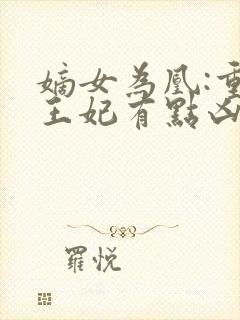 嫡女為凰:重
王妃有點凶
羅悅